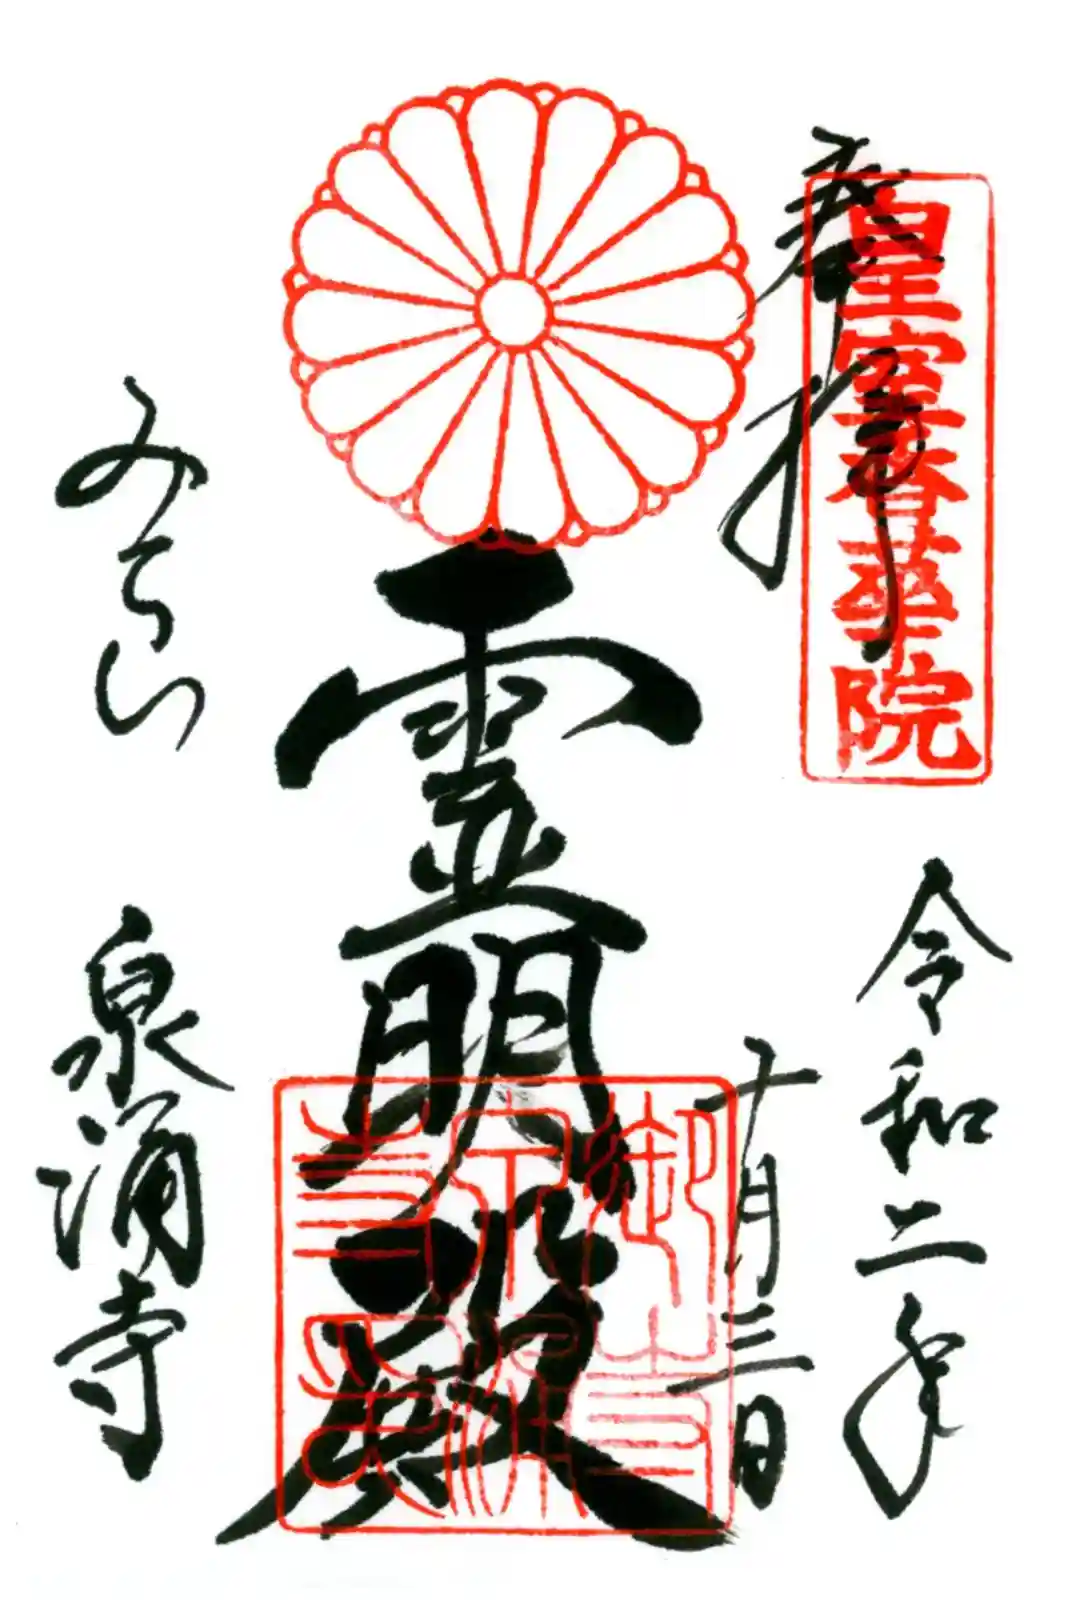 奉拝
皇室香華院
令和二年
十月三日
霊明殿
御寺泉涌寺印
みてら
泉涌寺